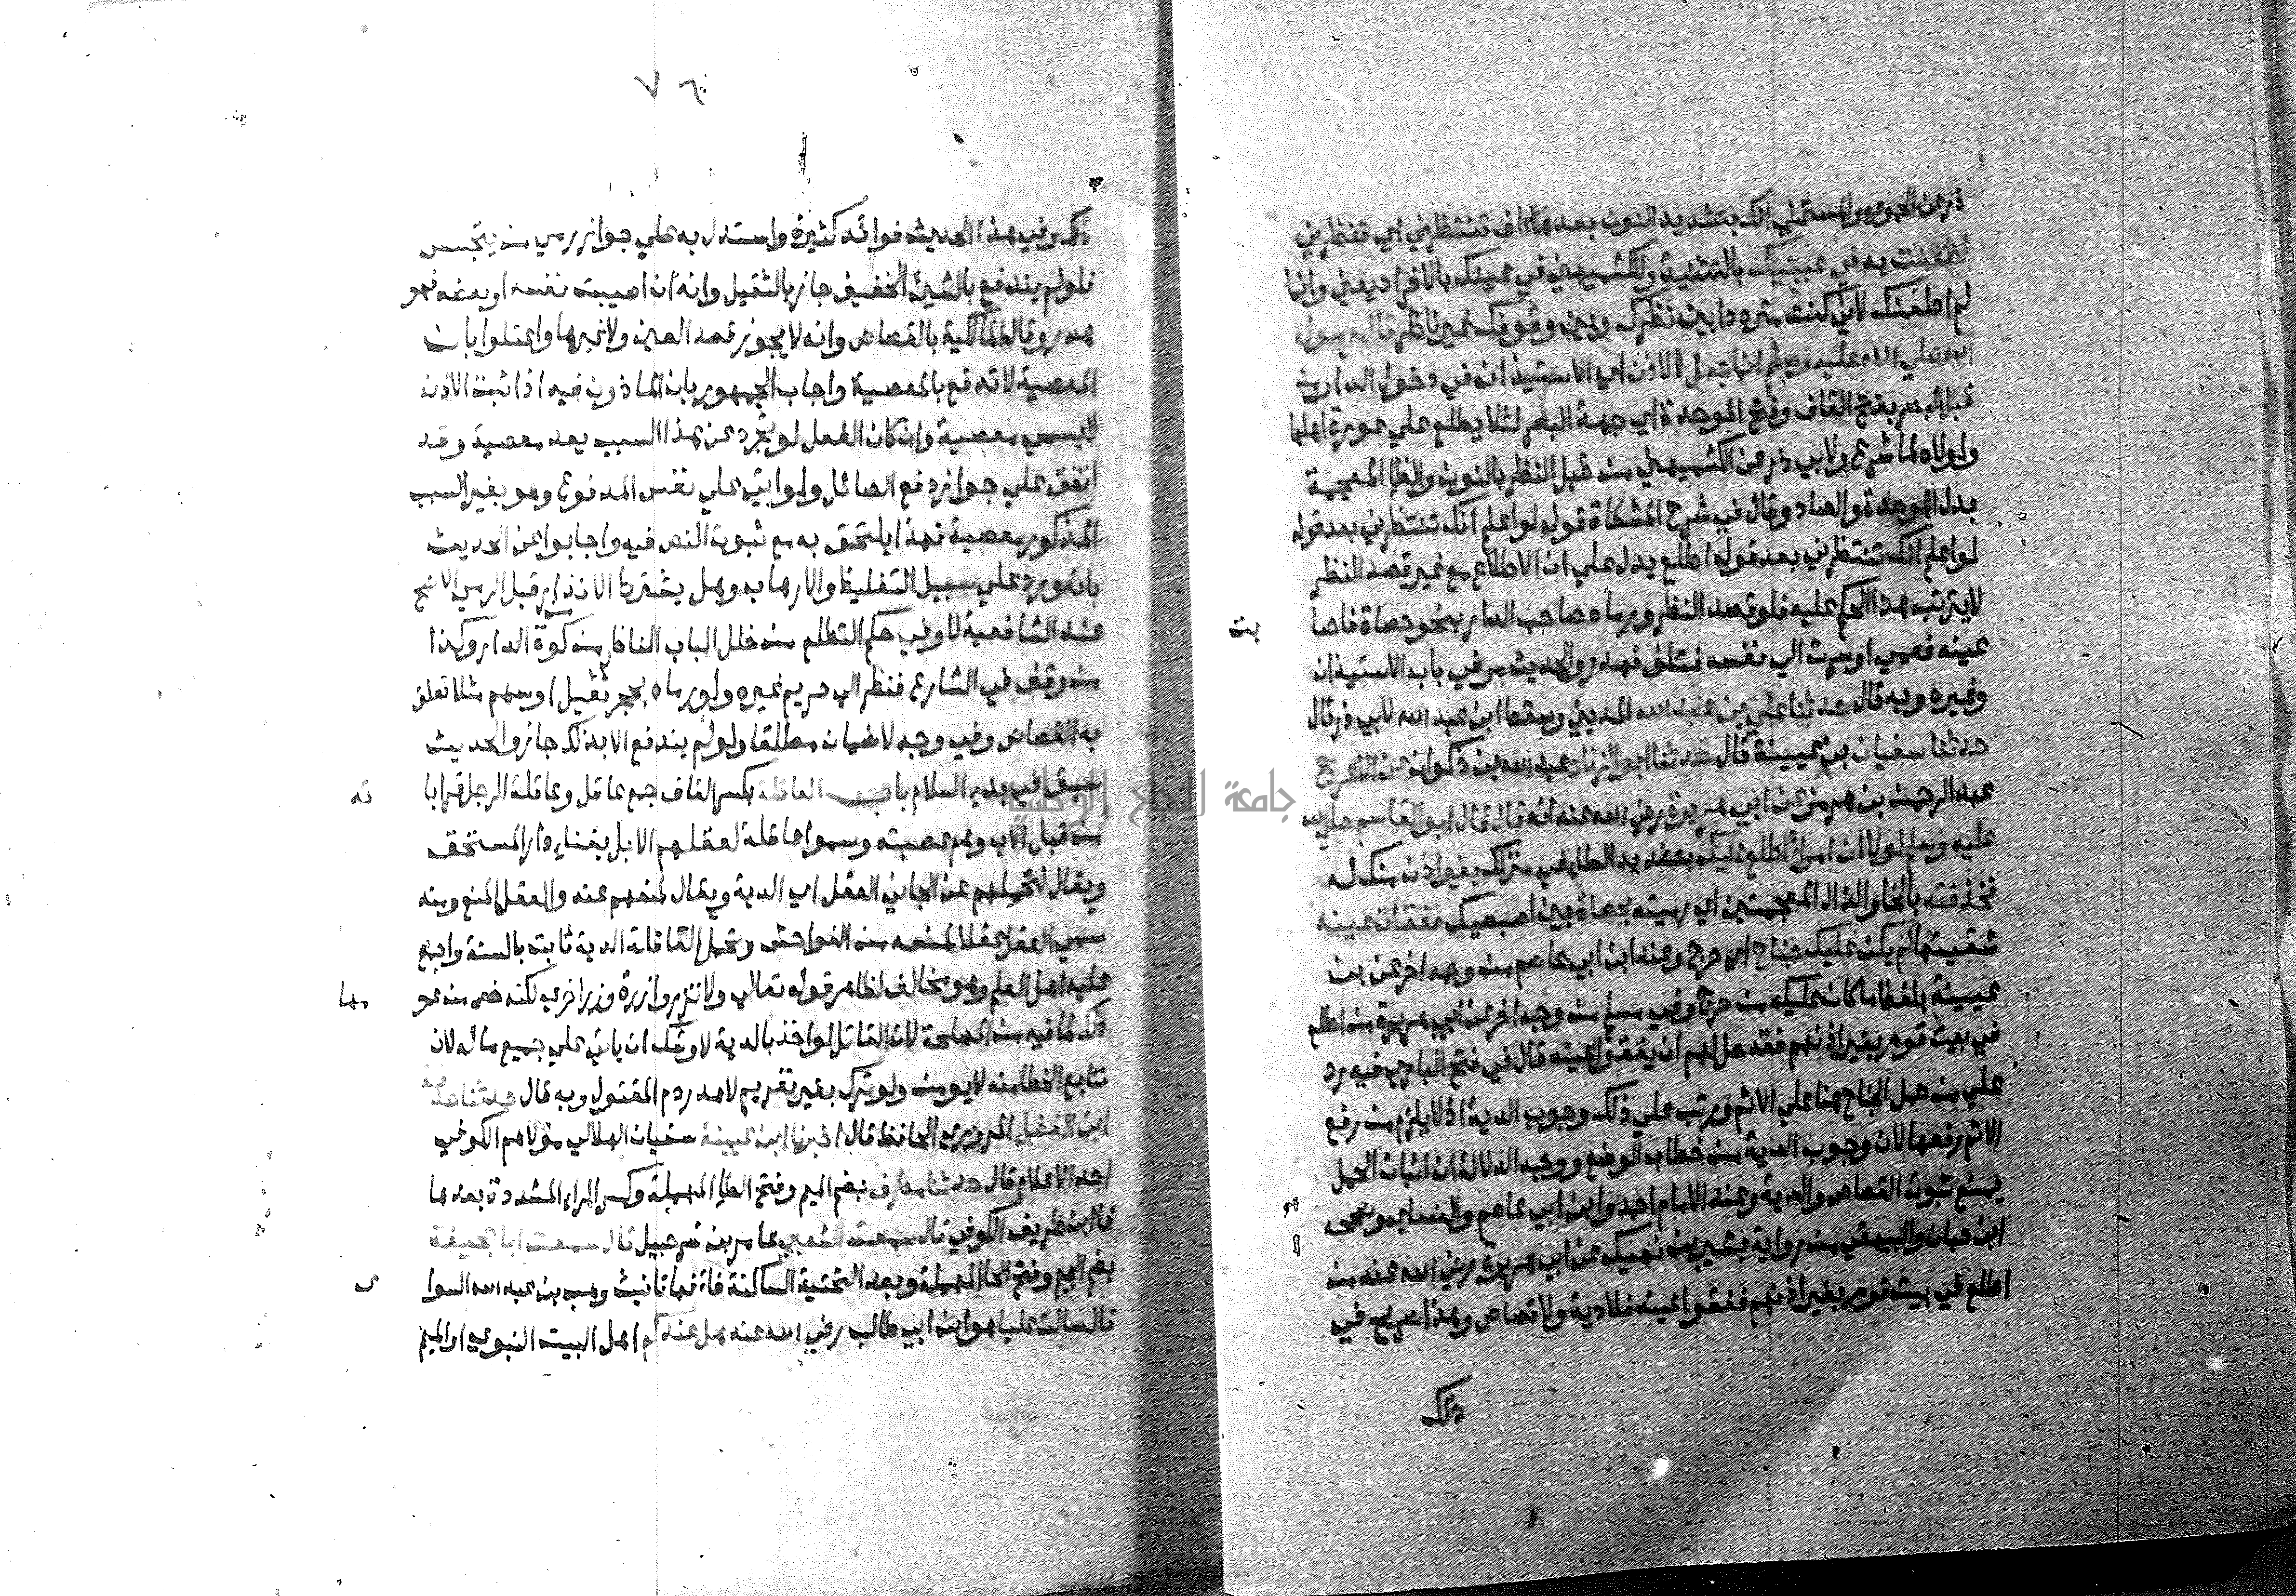 ذر عن الحموي والمستملي انك بتشديد النون بعدها كاف تنتظرني اي تنظرني
لطعنت به في عينيك بالتثنية وللكشميهني في عينك بالافراد يعني وانما
لم اطعنك لاني كنت مترددا بين نظرك وبين وقوفك غير ناظر قال رسول
الله صلي الله عليه وسلم انما جعل الاذن اي الاستيذان في دخول الدار من
قبل البصر بفتح القاف وفتح الموحدة اي جهة البصر لئلا يطلع علي عورة اهلها
ولولاه لما شرع ولابي ذر عن الكشميهني من قبل النظر بالنون والظا المعجمة
بدل الموحدة والصاد وقال في شرح المشكاة قوله لو اعلم انك تنتظرني بعد قوله
لو اعلم انك تنتظرني بعد قوله اطلع يدل علي ان الاطلاع مع غير قصد النظر
لا يترتب هذا الحكم عليه فلو قصد النظر ورماه صاحب الدار بنحو حصاة فاصا
بت
عينه فعمي او سرت الي نفسه فتلف فهدر والحديث مر في باب الاستيذان
وغيره وبه قال حدثنا علي بن عبد الله المديني وسقط ابن عبد الله لابي ذر قال
حدثنا سفيان بن عيينة قال حدثنا ابو الزناد عبد الله بن ذكوان عن الاعرج
عبد الرحمن بن هرمز عن ابي هريرة رضي الله عنه انه قال قال ابو القاسم صلي الله
عليه وسلم لو ان امرأ اطلع عليك بتشديد الطاء في منزلك بغير اذن منك له
فخذفته بالخا والذال المعجمتين اي رميته بحصاة بين اصبعيك ففقات عينه
شققتها لم يكن عليك جناح اي حرج وعند ابن ابي عاصم من وجه اخر عن بن
عيينة بلفظ ما كان عليك من حرج وفي مسلم من وجه اخر عن ابي هريرة من اطلع
في بيت قوم بغير اذنهم فقد حل لهم ان يفقئوا عينه قال في فتح الباري فيه رد
علي من حمل الجناح هنا علي الاثم ورتب علي ذلك وجوب الدية اذ لا يلزم من رفع
الاثم رفعها لان وجوب الدية من خطاب الوضع ووجه الدلالة ان اثبات الحل
يمنع ثبوت القصاص والدية وعند الامام احمد وابن ابي عاصم والنساي وصححه
ابن حبان والبيهقي من رواية بشير بن نهيك عن ابي هريرة رضي الله عنه من
اطلع في بيت قوم بغير اذنهم ففقوا عينه فلا دية ولا قصاص وهذا صريح في
ذلك
٧٦
ذلك وفي هذا الحديث فوائد كثيرة واستدل به علي جواز رمي من يتجسس
فلو لم يندفع بالشيء الخفيف جاز بالثقيل وانه ان اصيبت نفسه او بعضه فهو
هدر وقال المالكية بالقصاص وانه لا يجوز قصد العين ولا غيرها واعتلوا بان
المعصية لا تدفع بالمعصية واجاب الجمهور بان الماذون فيه اذا ثبت الاذن
لا يسمي معصية وان كان الفعل لو تجرد عن هذا السبب يعد معصية وقد
اتفق علي جواز دفع الصائل ولو اتي علي نفس المدفوع وهو بغير السبب
المذكور معصية فهذا يلتحق به مع ثبوت النص فيه واجابوا عن الحديث
بانه ورد علي سبيل التغليظ والارهاب وهل يشترط الانذار قبل الرمي الاصح
عند الشافعية لا وفي حكم التطلع من خلل الباب الناظر من كوة الدار وكذا
من وقف في الشارع فنظر الي حريم غيره ولو رماه بحجر ثقيل او سهم مثلا تعلق
به القصاص وفي وجه لا ضمان مطلقا ولو لم يندفع الا بذلك جاز والحديث
سبق في بدء السلام باب العاقلة بكسر القاف جمع عاقل وعاقلة الرجل قرابا
ته
من قبل الاب وهم عصبته وسموا عاقلة لعقلهم الابل بفناء دار المستحق
ويقال لتحملهم عن الجاني العقل اي الدية ويقال لمنعهم عنه والعقل المنع ومنه
سمي العقل عقلا لمنعه من الفواحش وتحمل العاقلة الدية ثابت بالسنة واجمع
عليه اهل العلم وهو مخالف لظاهر قوله تعالي ولا تزر وازرة وزر اخري لكنه خص من عمو
مها
ذلك لما فيه من المصلحة لان القاتل لو اخذ بالدية لاوشك ان ياتي علي جميع ماله لان
تتابع الخطا منه لا يومن ولو ترك بغير تغريم لاهدر دم المقتول وبه قال حدثنا صدقة
ابن الفضل المروزي الحافظ قال اخبرنا ابن عيينة سفيان الهلالي مولاهم الكوفي
احد الاعلام قال حدثنا مطرف بضم الميم وفتح الطا المهملة وكسر الراء المشددة بعدها
فا ابن طريف الكوفي قال سمعت الشعبي عامر بن شرحبيل قال سمعت ابا جحيفة
بضم الجيم وفتح الحا المهملة وبعد التحتية الساكنة فاء فها تانيث وهب بن عبد الله السوا
ى
قال سالت عليا هو ابن ابي طالب رضي الله عنه هل عندكم اهل البيت النبوي او الميم